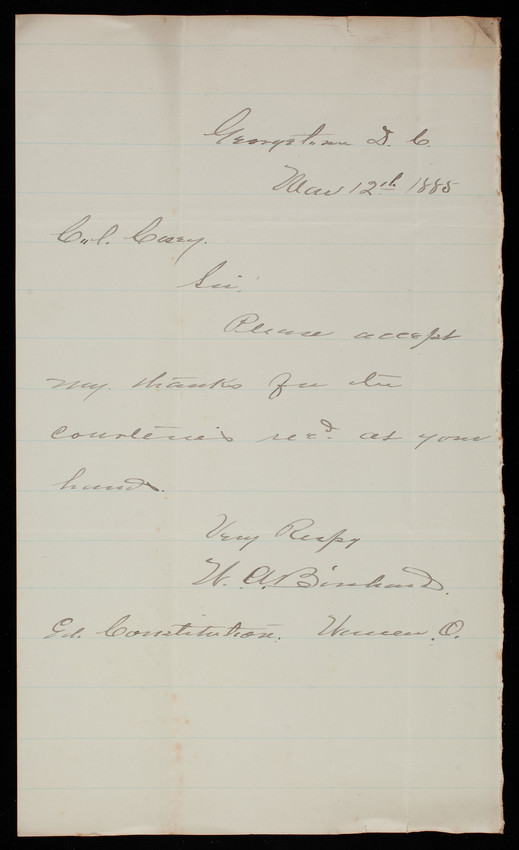 Georgetown D. C.
Mar 12th 1885
Col. Casey.
Sir.
Please accept
my thanks for the
courtesies recd. at your
hands.
Very Respy
W. A. Birchard.
Ed. Constitution. Warren. O.